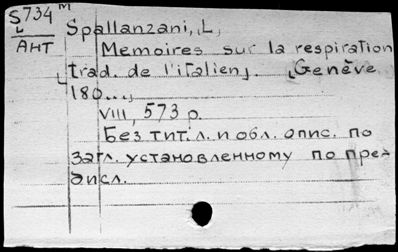 S734 M
АНТ
Spallanzani, L,
Memoires sur la respiration
trad. de l'italien,. Genève
180...,
VIII, 573 p.
Без тит. л. и обл. опис. по
загл. установленному по пре-
дисл.